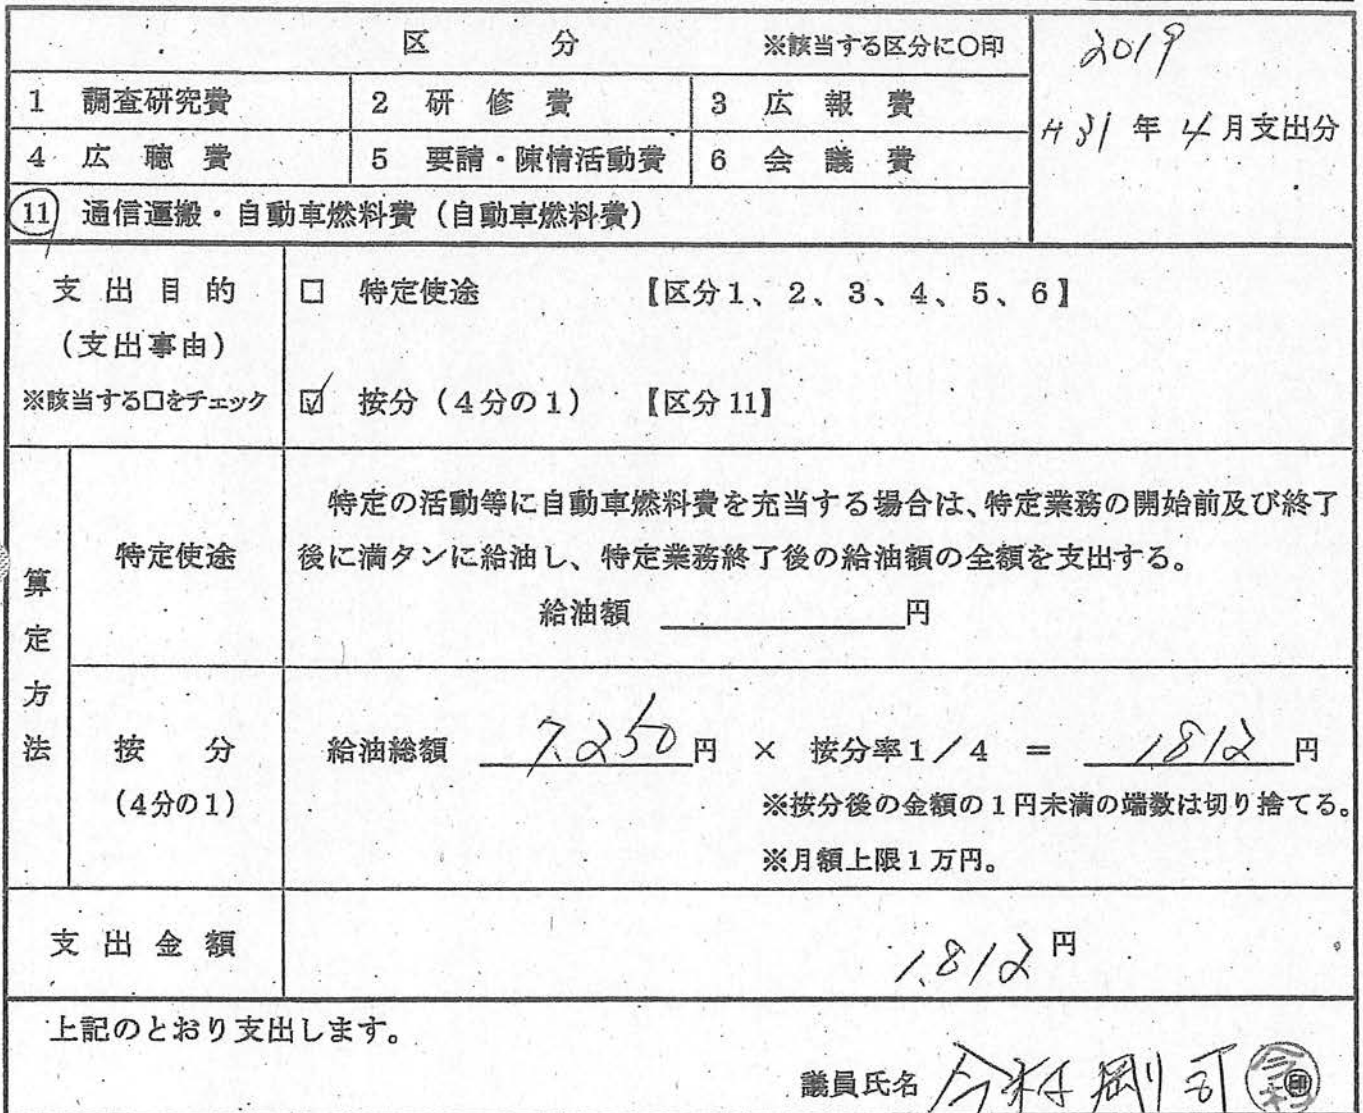 区 分 ※該当する区分に○印
2019
H31年4月支出分
1 調査研究費 2 研修費 3 広報費
4 広聴費 5 要請・陳情活動費 6 会議費
11 通信運搬・自動車燃料費（自動車燃料費）
支出目的
（支出事由）
※該当する□をチェック
□ 特定使途 【区分1、2、3、4、5、6】
☑ 按分（4分の1） 【区分11】
算定方法
特定使途
特定の活動等に自動車燃料費を充当する場合は、特定業務の開始前及び終了
後に満タンに給油し、特定業務終了後の給油額の全額を支出する。
給油額 円
按分
（4分の1）
給油総額 7,250円 × 按分率1／4 ＝ 1,812円
※按分後の金額の1円未満の端数は切り捨てる。
※月額上限1万円。
支出金額 1,812円
上記のとおり支出します。
議員氏名 今村剛司 ㊞